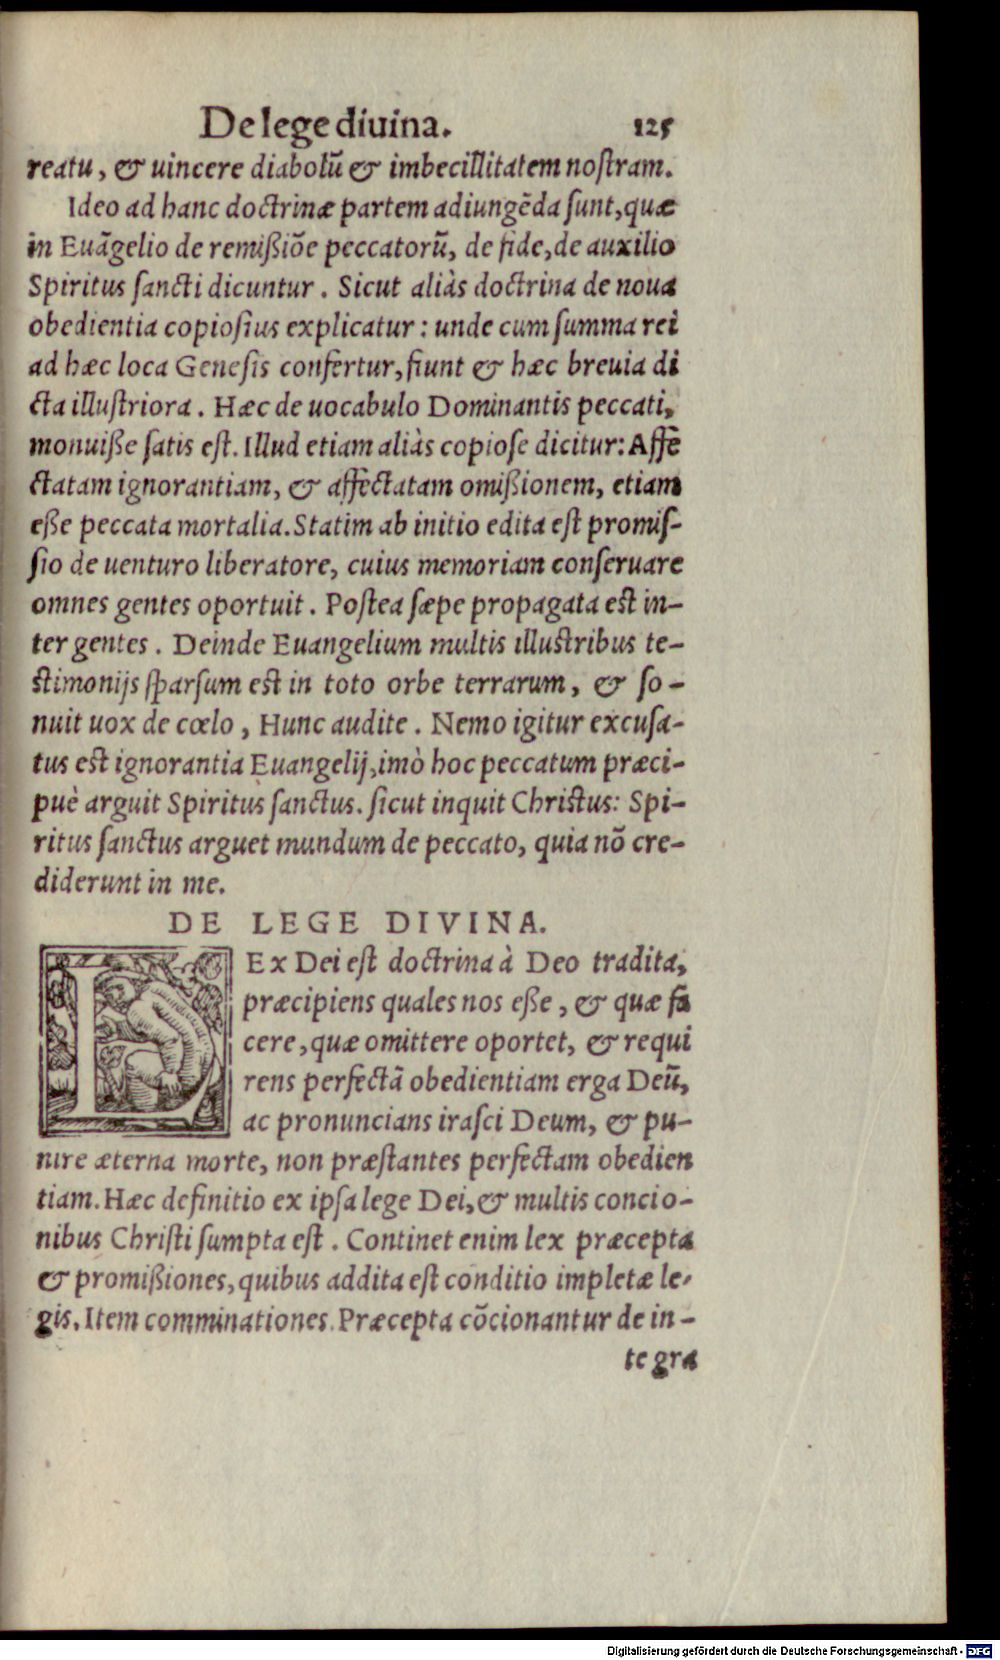 De lege diuina. 125
reatu, & uincere diabolũ & imbecillitatem nostram.
Ideo ad hanc doctrinæ partem adiungẽda ſunt, quæ
in Euãgelio de remißiõe peccatorũ, de fide, de auxilio
Spiritus ſancti dicuntur. Sicut aliàs doctrina de noua
obedientia copioſius explicatur: unde cum ſumma rei
ad hæc loca Geneſis confertur, fiunt & hæc breuia di
cta illuſtriora. Hæc de uocabulo Dominantis peccati,
monuiße ſatis eſt. Illud etiam aliàs copioſe dicitur: Affe
ctatam ignorantiam, & affectatam omißionem, etiam
eße peccata mortalia. Statim ab initio edita eſt promiſ-
ſio de uenturo liberatore, cuius memoriam conſeruare
omnes gentes oportuit. Poſtea ſæpe propagata est in-
ter gentes. Deinde Euangelium multis illustribus te-
stimonijs ſparſum est in toto orbe terrarum, & ſo-
nuit uox de cœlo, Hunc audite. Nemo igitur excuſa-
tus est ignorantia Euangelij, imò hoc peccatum præci-
puè arguit Spiritus ſanctus. ſicut inquit Christus: Spi-
ritus ſanctus arguet mundum de peccato, quia nõ cre-
diderunt in me.
DE LEGE DIVINA.
LEx Dei eſt doctrina à Deo tradita,
præcipiens quales nos eße, & quæ fa
cere, quæ omittere oportet, & requi
rens perfectã obedientiam erga Deũ,
ac pronuncians iraſci Deum, & pu-
nire æterna morte, non præſtantes perfectam obedien
tiam. Hæc definitio ex ipſa lege Dei, & multis concio-
nibus Chriſti ſumpta eſt. Continet enim lex præcepta
& promißiones, quibus addita eſt conditio impletæ le-
gis. Item comminationes. Præcepta cõcionantur de in-
tegra
Digitalisierung gefördert durch die Deutsche Forschungsgemeinschaft - DFG